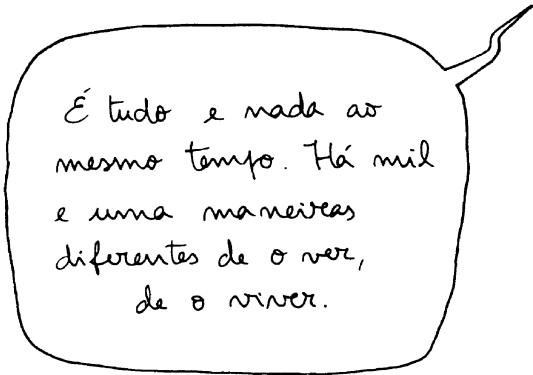 É tudo e nada ao
mesmo tempo. Há mil
e uma maneiras
diferentes de o ver,
de o viver.